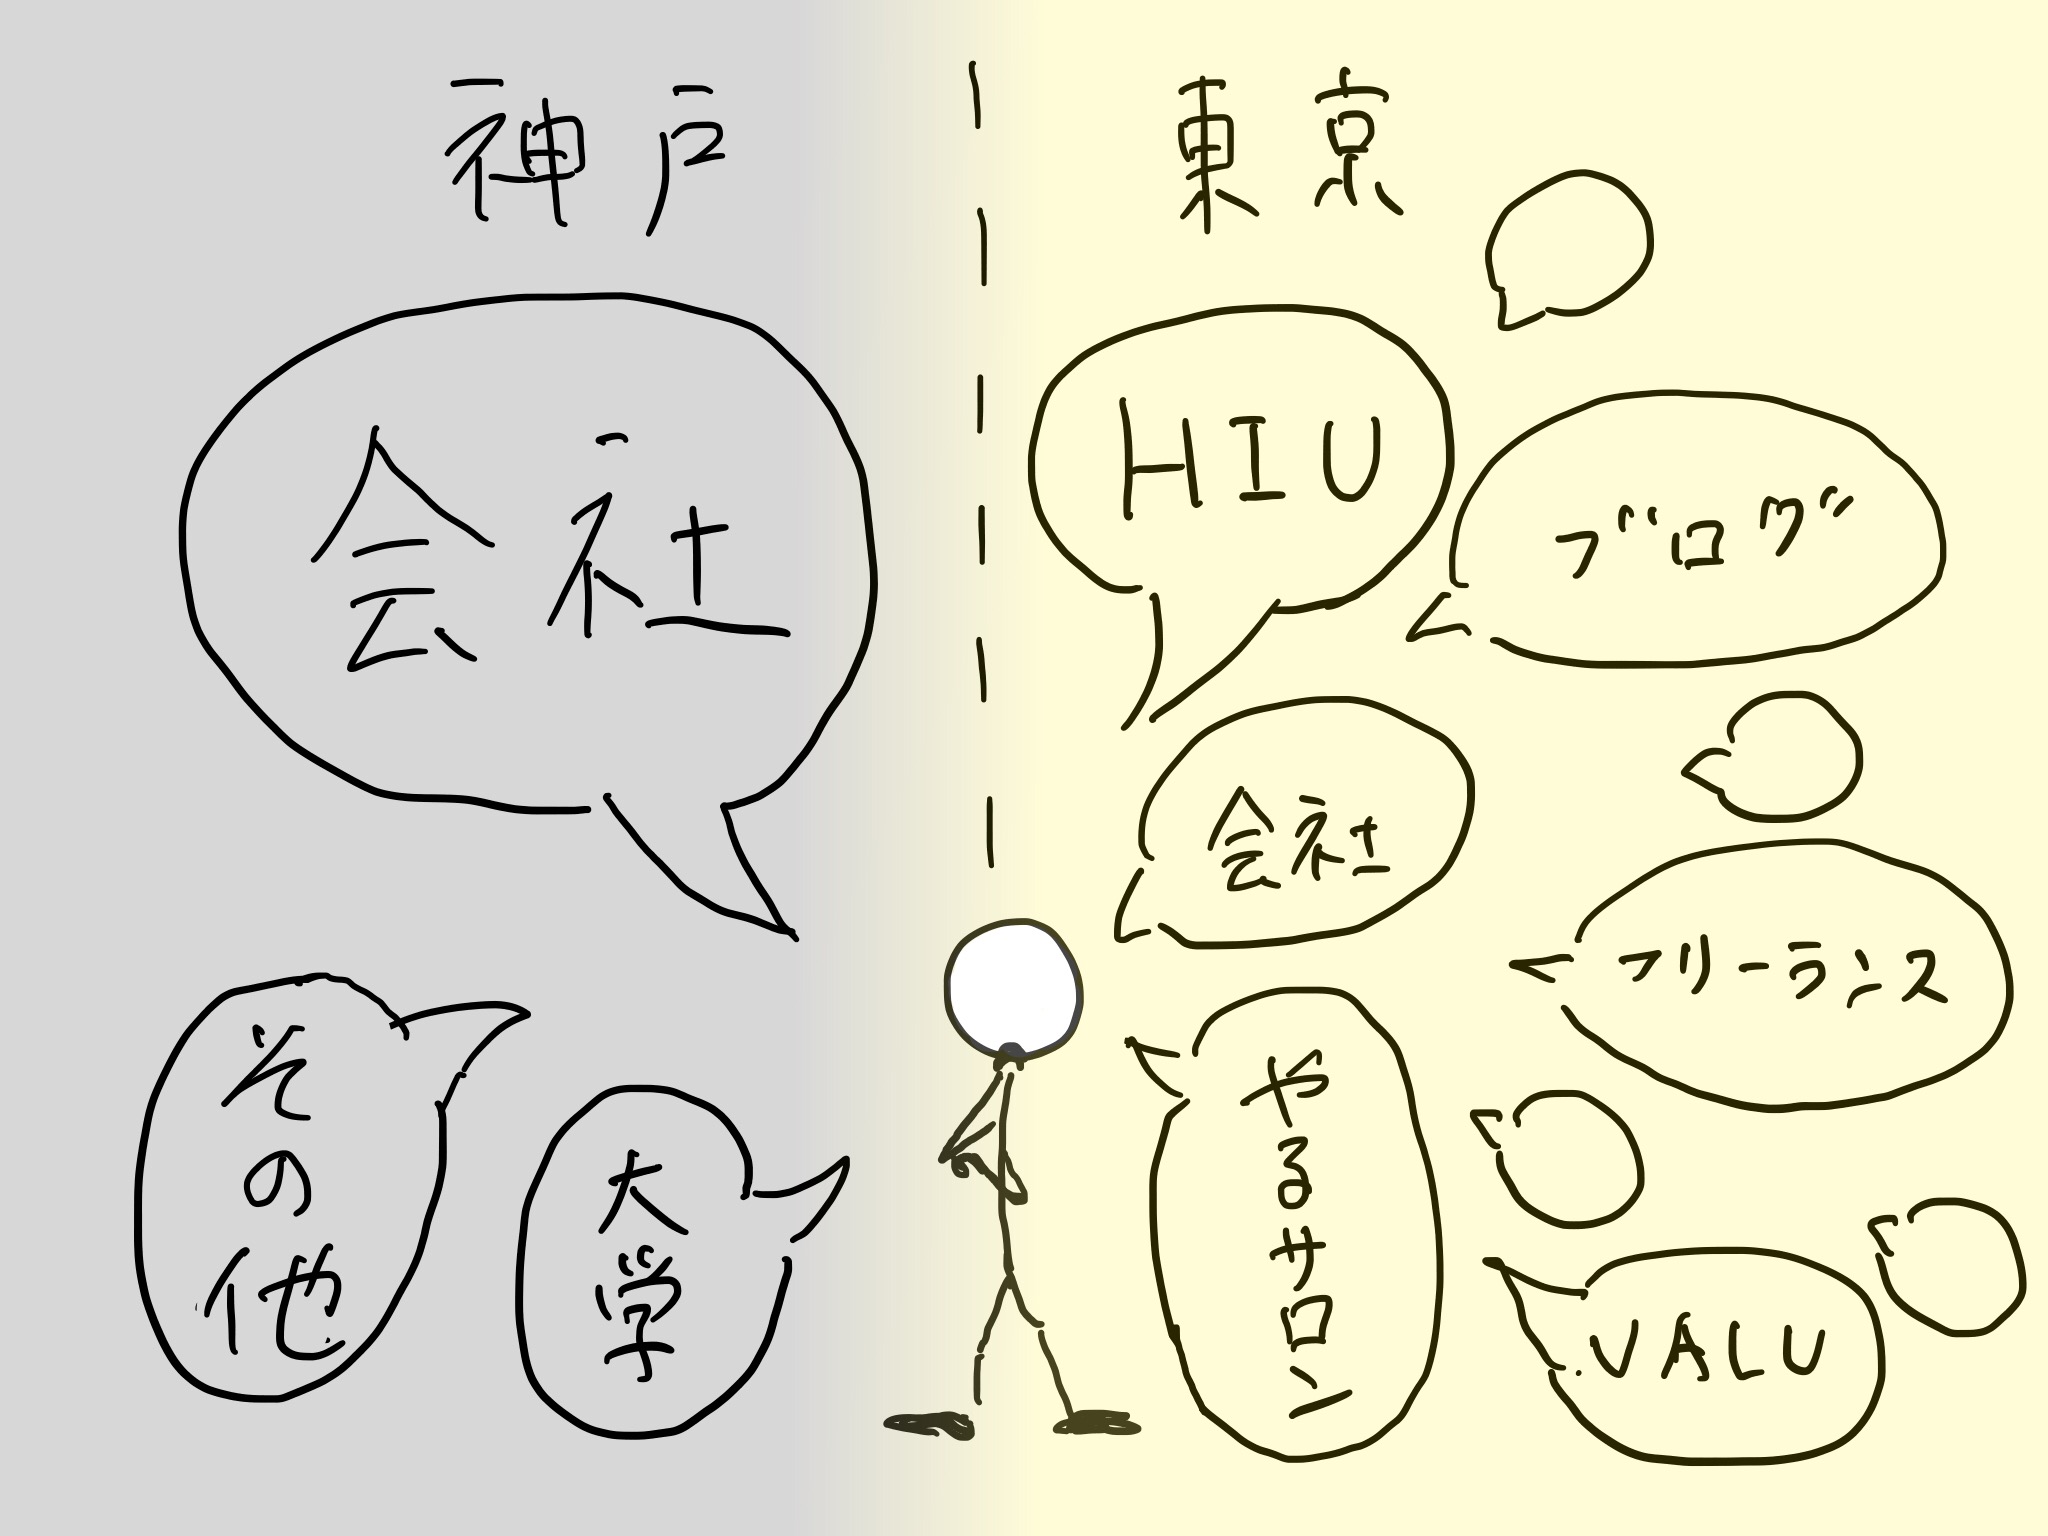 神戸
会社
その他
大学
東京
HIU
ブログ
会社
フリーランス
やるサロン
VALU